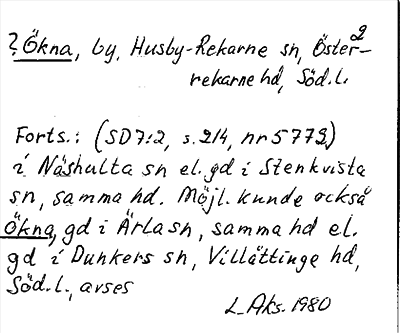 2
? Ökna, by, Husby-Rekarne sn, Öster-
rekarne hd, Söd.l.
Forts.: (SD7:2, s. 214, nr 5773)
i Näshulta sn el. gd i Stenkvista
sn, samma hd. Möjl. kunde också
Ökna, gd i Ärla sn, samma hd el.
gd i Dunkers sn, Villåttinge hd,
Söd.l., avses
L. Aks. 1980